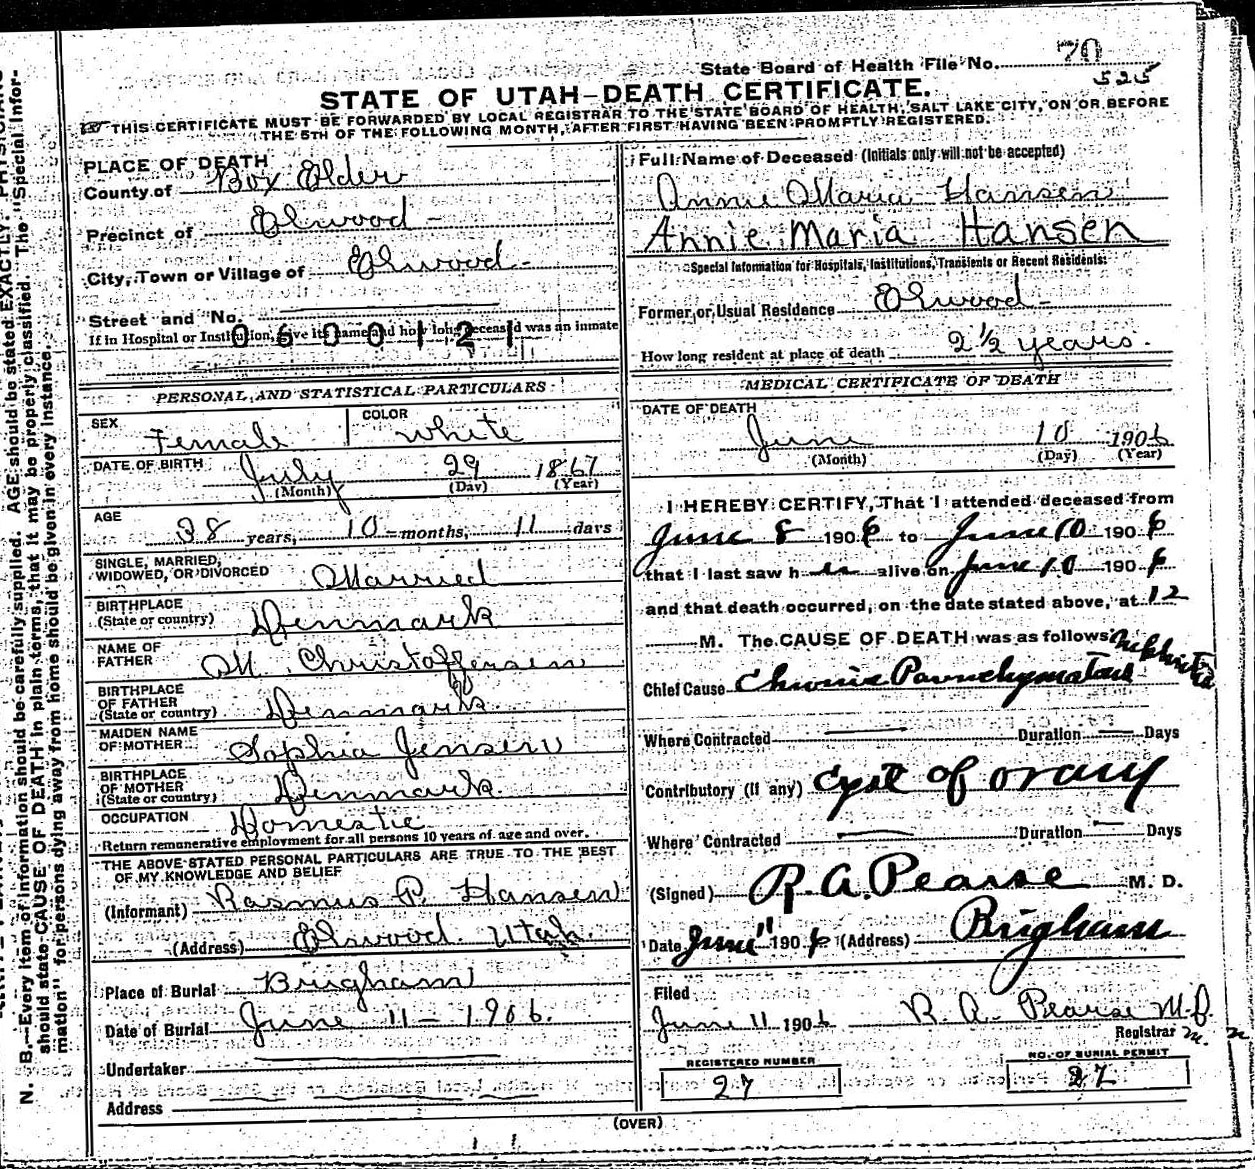 State Board of Health File No. 70
525
STATE OF UTAH–DEATH CERTIFICATE.
THIS CERTIFICATE MUST BE FORWARDED BY LOCAL REGISTRAR TO THE STATE BOARD OF HEALTH, SALT LAKE CITY, ON OR BEFORE
THE 5TH OF THE FOLLOWING MONTH, AFTER FIRST HAVING BEEN PROMPTLY REGISTERED.
PLACE OF DEATH
County of Box Elder
Precinct of Elwood
City, Town or Village of Elwood
Street and No.
If in Hospital or Institution, give its name and how long deceased was an inmate
0600121
PERSONAL AND STATISTICAL PARTICULARS
SEX Female
COLOR White
DATE OF BIRTH July 29 1867
(Month) (Day) (Year)
AGE
38 years, 10 months, 11 days
SINGLE, MARRIED,
WIDOWED, OR DIVORCED Married
BIRTHPLACE
(State or country) Denmark
NAME OF
FATHER M. Christoffersen
BIRTHPLACE
OF FATHER
(State or country) Denmark
MAIDEN NAME
OF MOTHER Sophia Jensen
BIRTHPLACE
OF MOTHER
(State or country) Denmark
OCCUPATION Domestic
Return remunerative employment for all persons 10 years of age and over.
THE ABOVE STATED PERSONAL PARTICULARS ARE TRUE TO THE BEST
OF MY KNOWLEDGE AND BELIEF
(Informant) Rasmus P. Hansen
(Address) Elwood. Utah.
Place of Burial Brigham
Date of Burial June 11 – 1906.
Undertaker
Address
Full Name of Deceased (Initials only will not be accepted)
Annie Maria Hansen
Annie Maria Hansen
Special Information for Hospitals, Institutions, Transients or Recent Residents:
Former or Usual Residence Elwood
How long resident at place of death 2 1/2 years.
MEDICAL CERTIFICATE OF DEATH
DATE OF DEATH
June 10 1906
(Month) (Day) (Year)
I HEREBY CERTIFY, That I attended deceased from
June 8 1906 to June 10 1906
that I last saw her alive on June 10 1906
and that death occurred, on the date stated above, at 12
M. The CAUSE OF DEATH was as follows
Chief Cause Chronic Parnchymatous Nephritis
Where Contracted Duration Days
Contributory (if any) Cyst of ovary
Where Contracted Duration Days
(Signed) R. A. Pearse M. D.
Date June 11 1906 (Address) Brigham
Filed
June 11 1906 R. A. Pearse M.D.
Registrar
REGISTERED NUMBER
27
NO. OF BURIAL PERMIT
27
(OVER)
N. B.—Every item of information should be carefully supplied. AGE should be stated EXACTLY. PHYSICIANS
should state CAUSE OF DEATH in plain terms, that it may be properly classified. The "Special Infor-
mation" for persons dying away from home should be given in every instance.